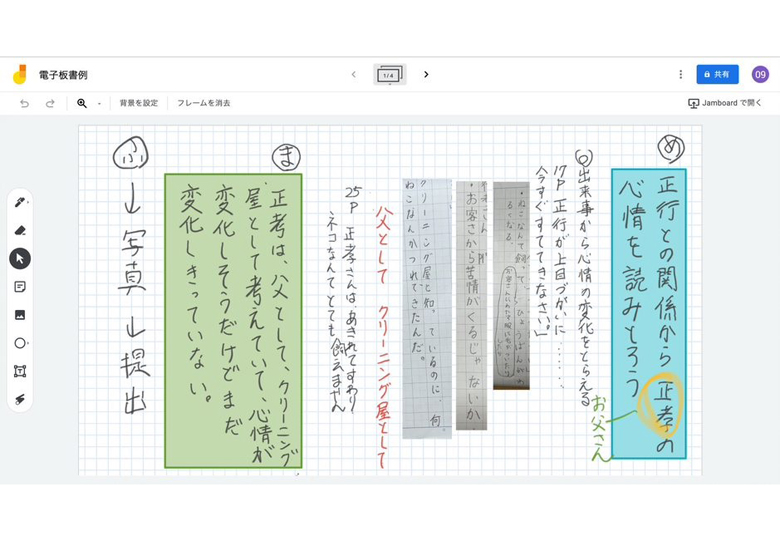 電子板書例
1/4
共有
09
背景を設定
フレームを消去
Jamboard で開く
め
正行との関係から正孝の
心情を読みとろう
お父さん
出来事から心情の変化をとらえる
17P 正行が上目づかいに……
今すぐすててきなさい。」
ねこなんて飼って
るくなる。
・お客さから苦情がくるじゃないか
クリーニング屋と知っているのに、何
ねこなんかつれてきたんだ。
父として クリーニング屋として
25P 正孝さんは、あきれてすわり
ネコなんてとても飼えません
ま
正考は、父として、クリーニング
屋として考えていて、心情が
変化しそうだけどまだ
変化しきっていない。
ふ
↓写真↓提出